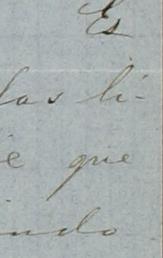 Es
las li-
e que
indo